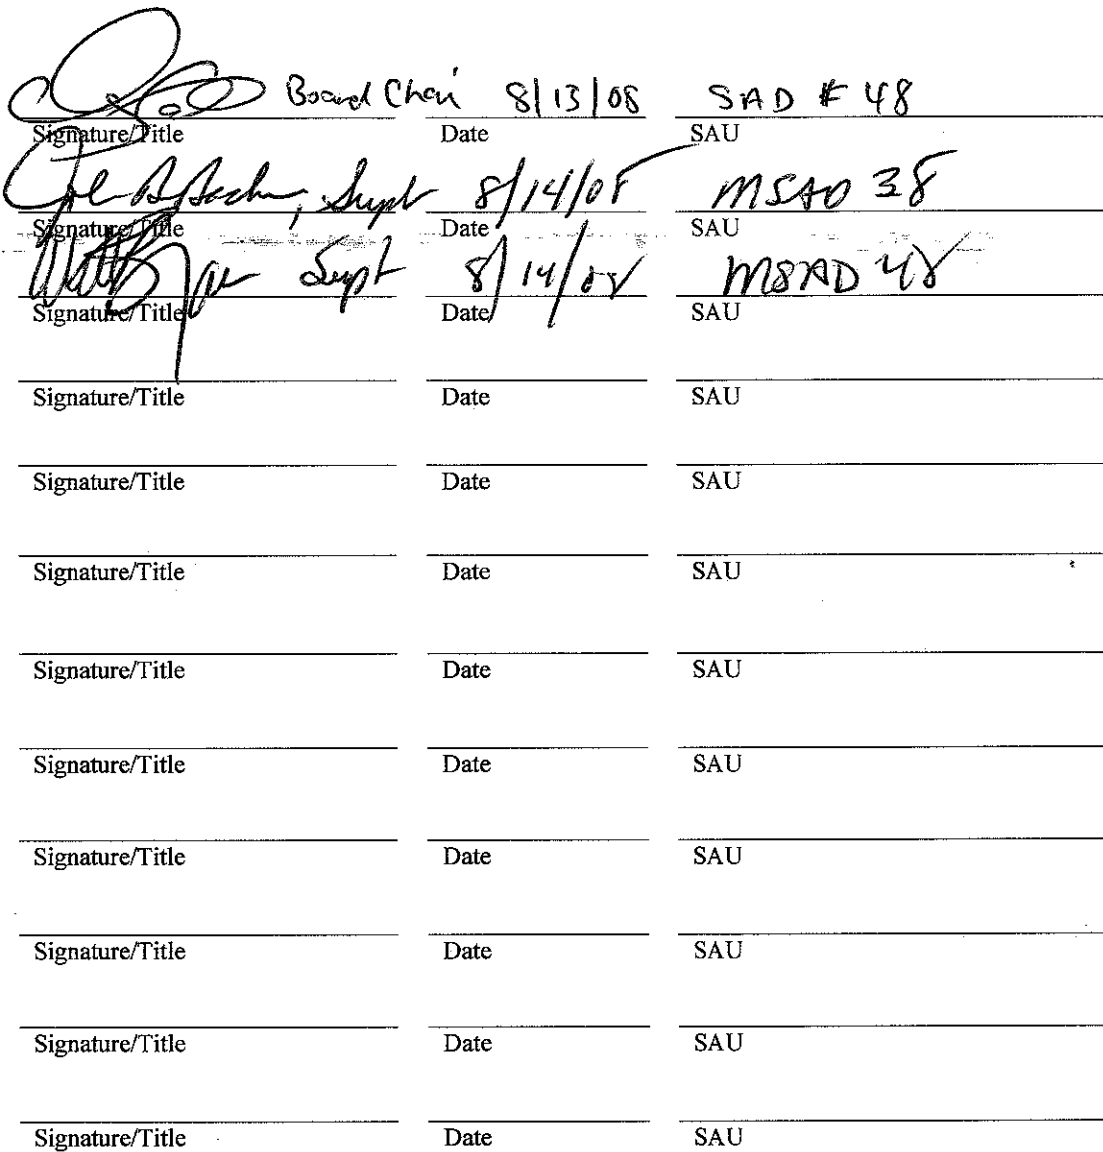 Board Chair 8/13/08 SAD # 48
Signature/Title Date SAU
Supt 8/14/08 MSAD 38
Signature/Title Date SAU
Supt 8/14/08 MSAD 48
Signature/Title Date SAU
Signature/Title Date SAU
Signature/Title Date SAU
Signature/Title Date SAU
Signature/Title Date SAU
Signature/Title Date SAU
Signature/Title Date SAU
Signature/Title Date SAU
Signature/Title Date SAU
Signature/Title Date SAU